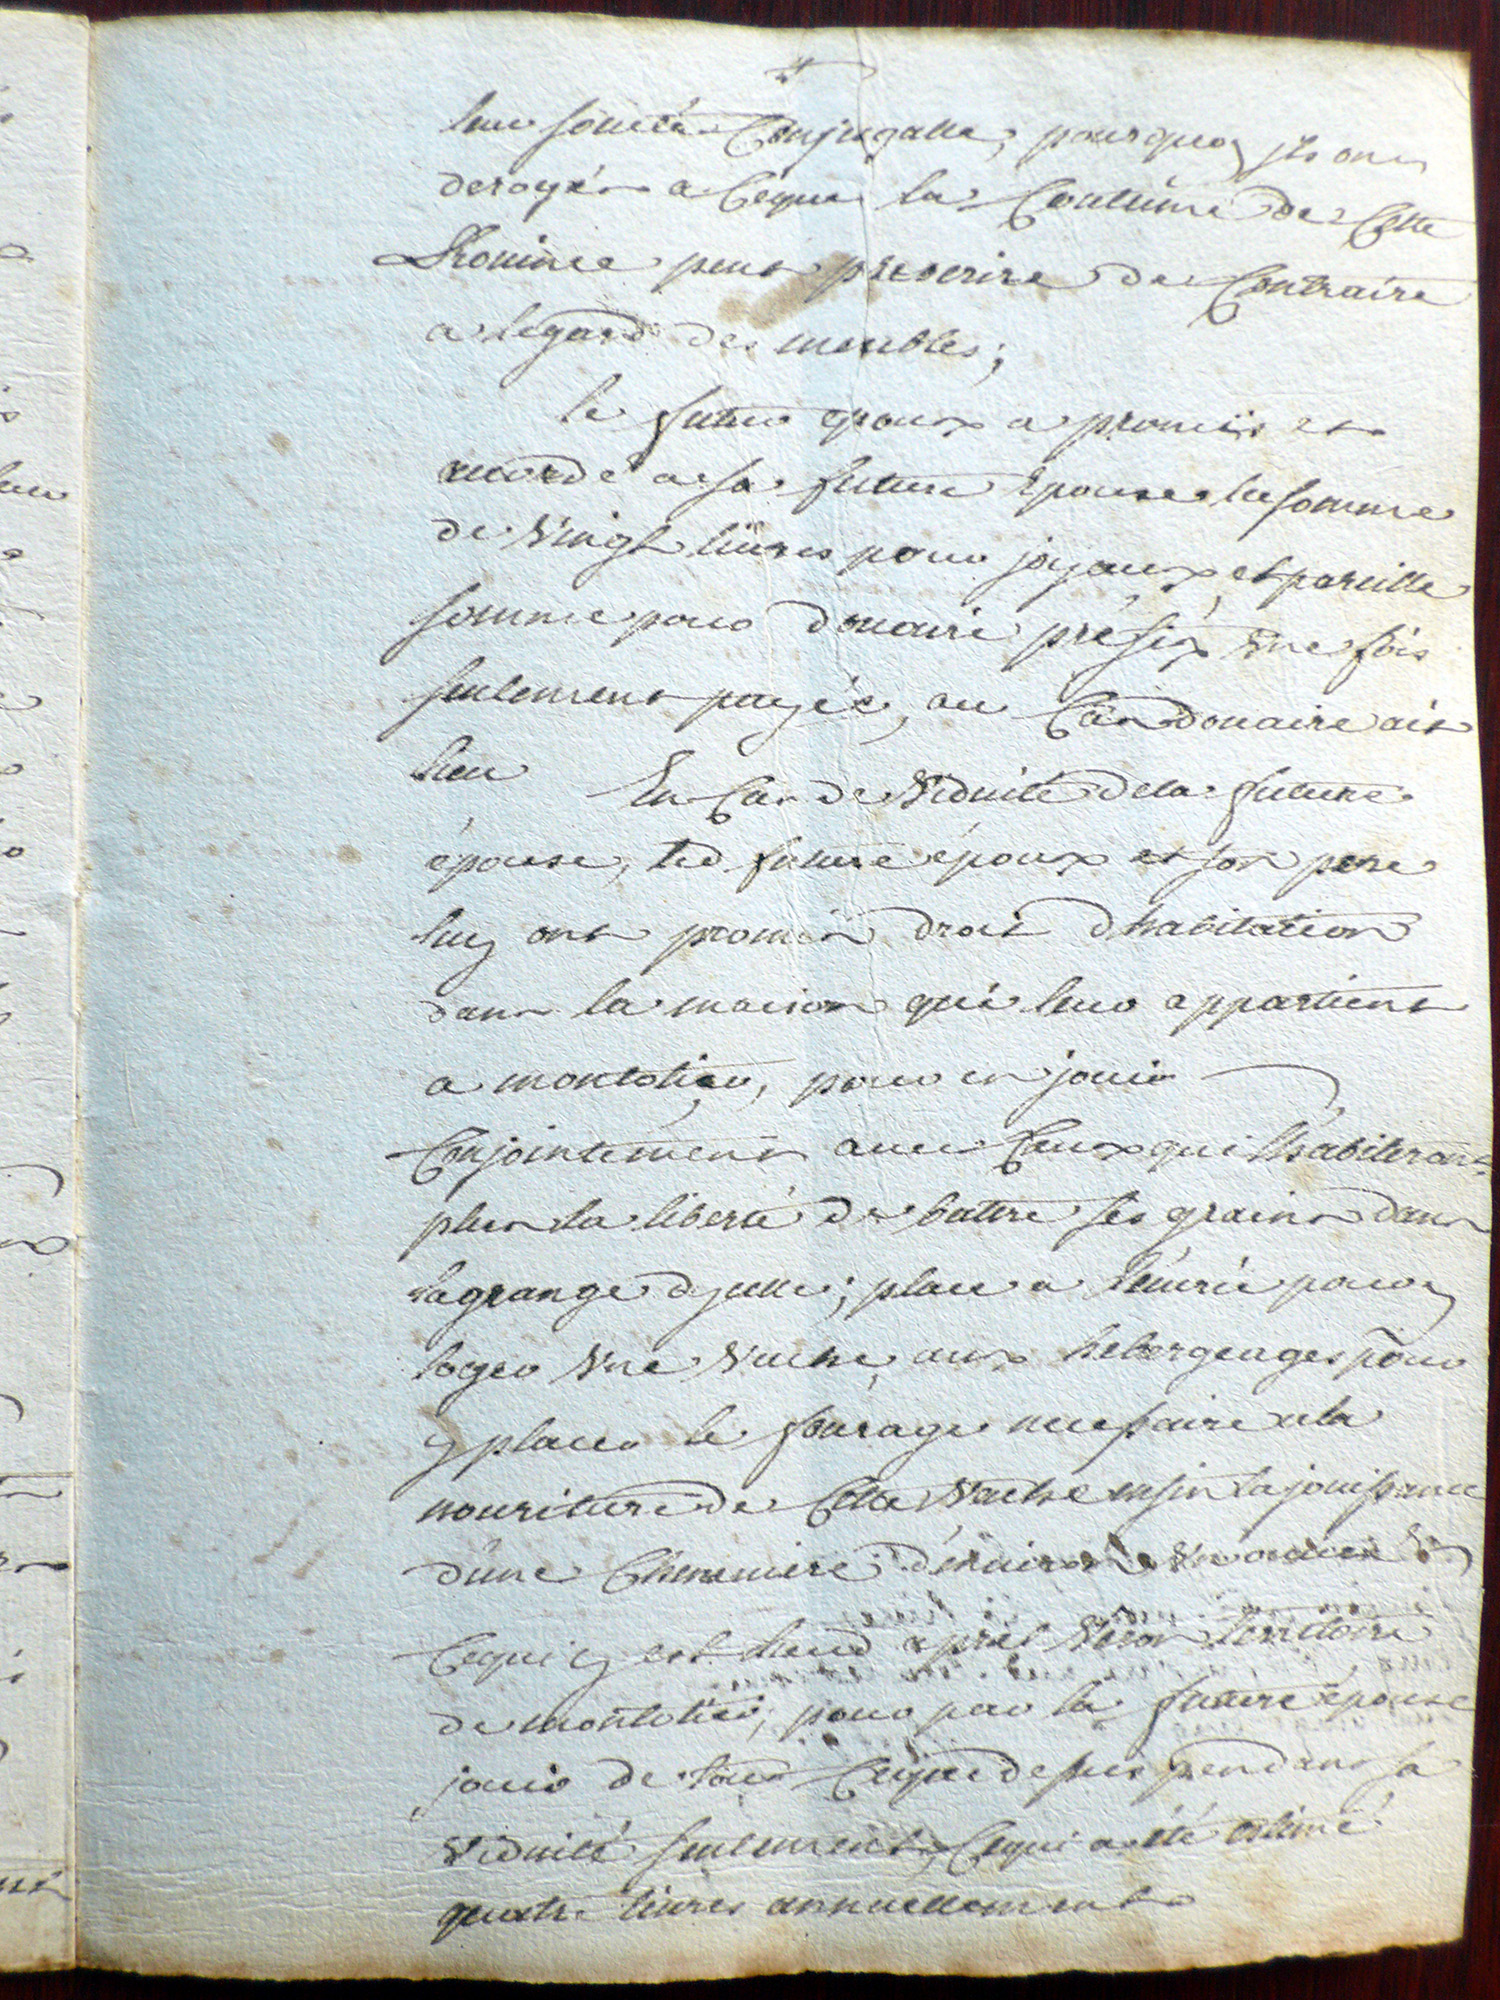 leur société Conjugalle, pourquoy ils ont
derogés a Ceque la Coutume de Cette
Province peut prescrire de Contraire
a legard des meubles;
le futur epoux a promis et
accordé a sa future Epouse la somme
de Vingt livres pour joyaux et pareille
somme pour douaire préfix Une fois
seulement payée, au Cas douaire ait
lieu En Cas de Viduité dela future
épouse, led futur époux et son pere
luy ont promis droit dhabitation
dans la maison qui leur appartient
a montolier, pour en jouir
Conjointement avec Ceux qui lhabiteront
plus la liberté de battre ses grains dans
la grange dycelle; place a lécurie pour y
loger Une Vache, aux hebergeages pour
y placer le fourage necessaire ala
nouriture de Cette Vache enfin la jouissance
dune Cheneviere d'environ Une
Cequi y est territoire
de montolier, pour par la future épouse
jouir de tout Ceque dessus pendant sa
Viduité seulement, Cequi a été estimé
quatre livres annuellement